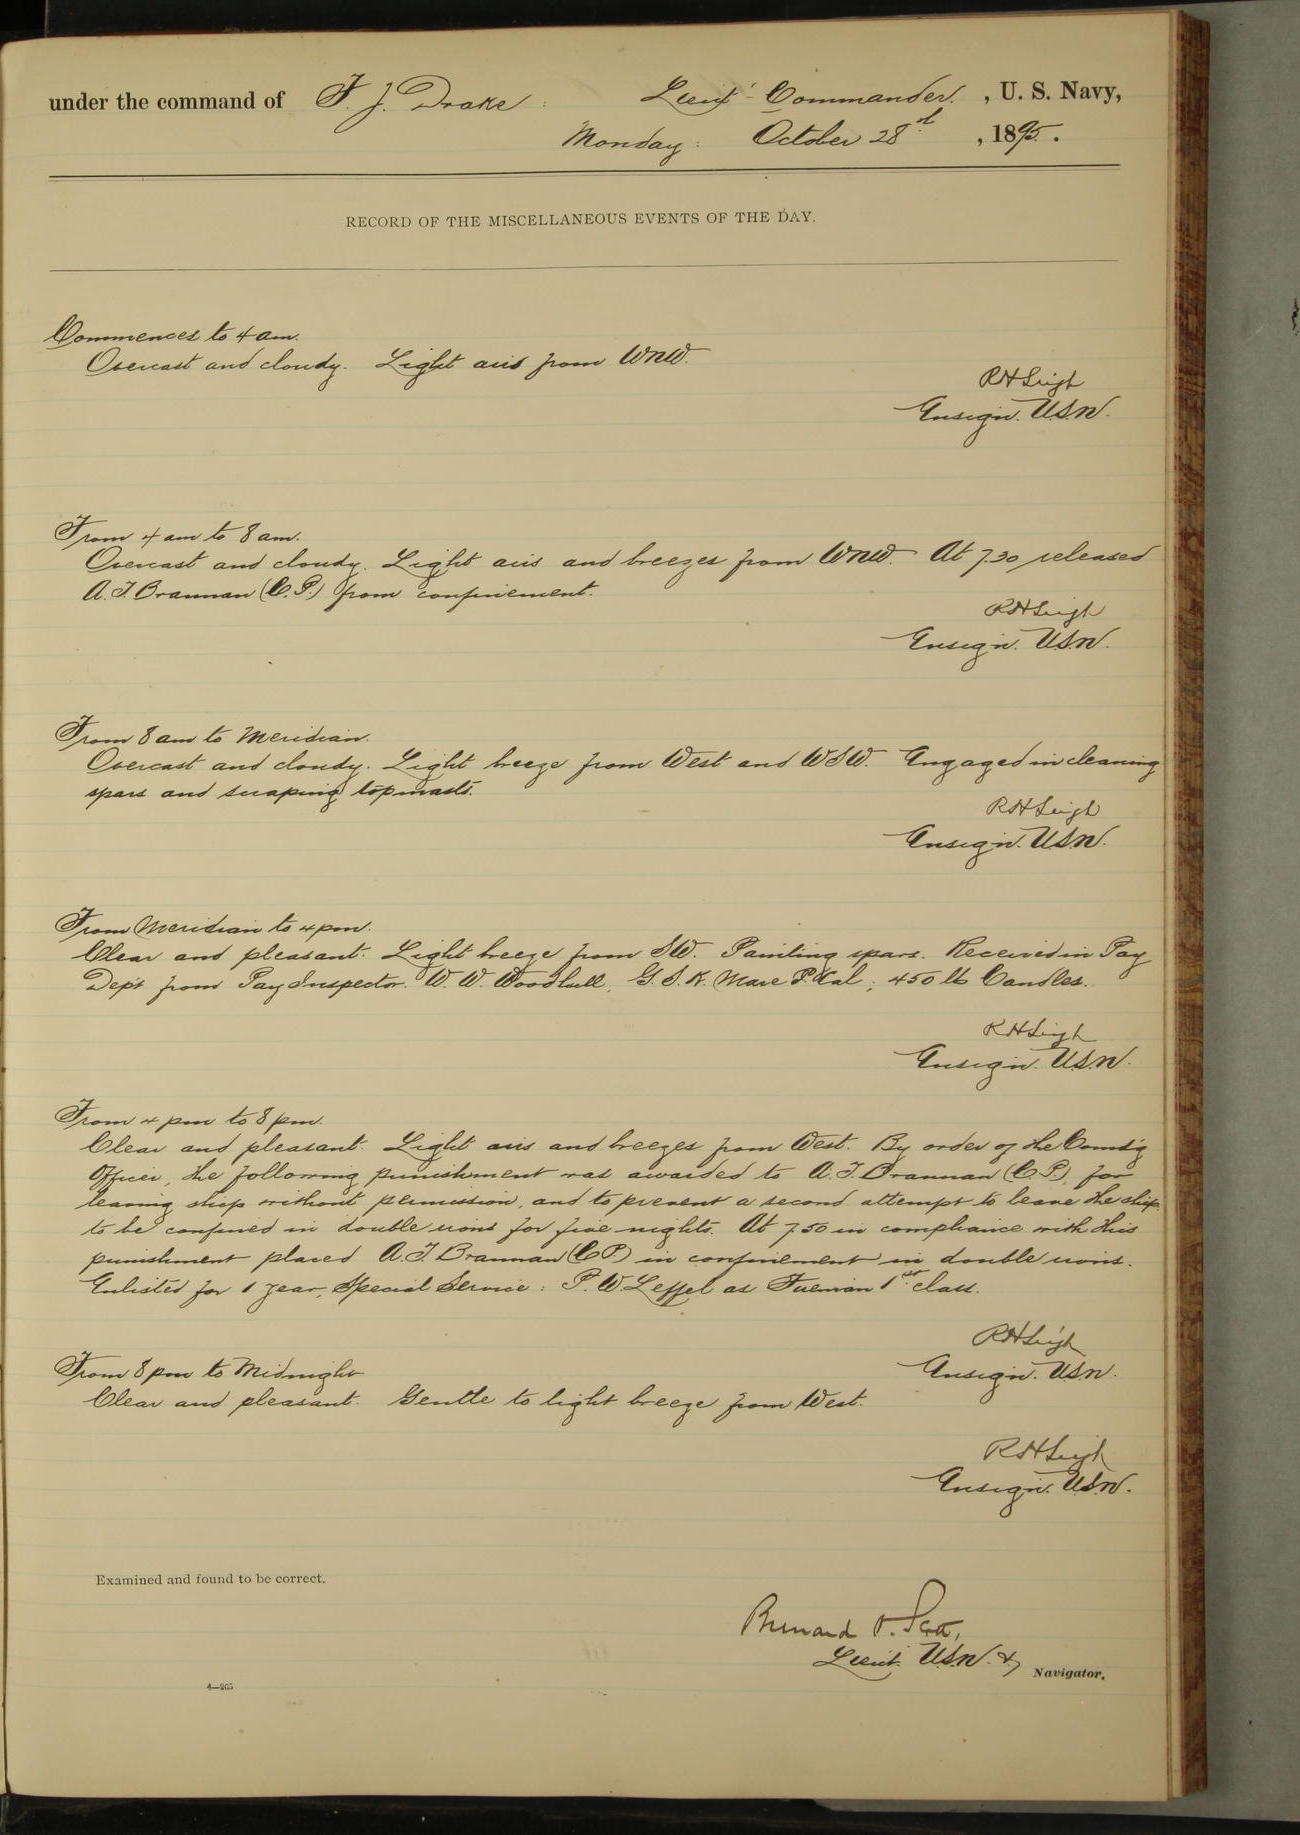 under the command of F. J. Drake Lieut Commander, U. S. Navy,
Monday: October 28th, 1895.
RECORD OF THE MISCELLANEOUS EVENTS OF THE DAY.
Commences to 4 am.
Overcast and cloudy. Light airs from WNW.
R H Leigh
Ensign. U.S.N.
From 4 am to 8 am.
Overcast and cloudy. Light airs and breezes from WNW. At 7.30 released
A. T. Brannan (C. P.) from confinement.
R H Leigh
Ensign. U.S.N.
From 8 am to Meridian.
Overcast and cloudy. Light breeze from West and WSW. Engaged in cleaning
spars and scraping topmasts.
R H Leigh
Ensign. U.S.N.
From Meridian to 4 pm.
Clear and pleasant. Light breeze from SW. Painting spars. Received in Pay
Dep't from Pay Inspector. W. W. Woodhull, G. S. K. Mare I. Cal; 450 lb Candles.
R H Leigh
Ensign. U.S.N.
From 4 pm to 8 pm.
Clear and pleasant. Light airs and breezes from West. By order of the Comd'g
Officer, the following punishment was awarded to A. T. Brannan (C. P.), for
leaving ship without permission, and to prevent a second attempt to leave the ship
to be confined in double irons for five nights. At 7.50 in compliance with this
punishment placed A. T. Brannan (C P) in confinement in double irons.
Enlisted for 1 year, Special Service: P. W. Leffel as Fireman 1st class.
R H Leigh
Ensign. U.S.N.
From 8 pm to Midnight
Clear and pleasant. Gentle to light breeze from West.
R H Leigh
Ensign. U.S.N.
Examined and found to be correct.
Bernard O. Scott,
Lieut. U.S.N. & Navigator.
4—205